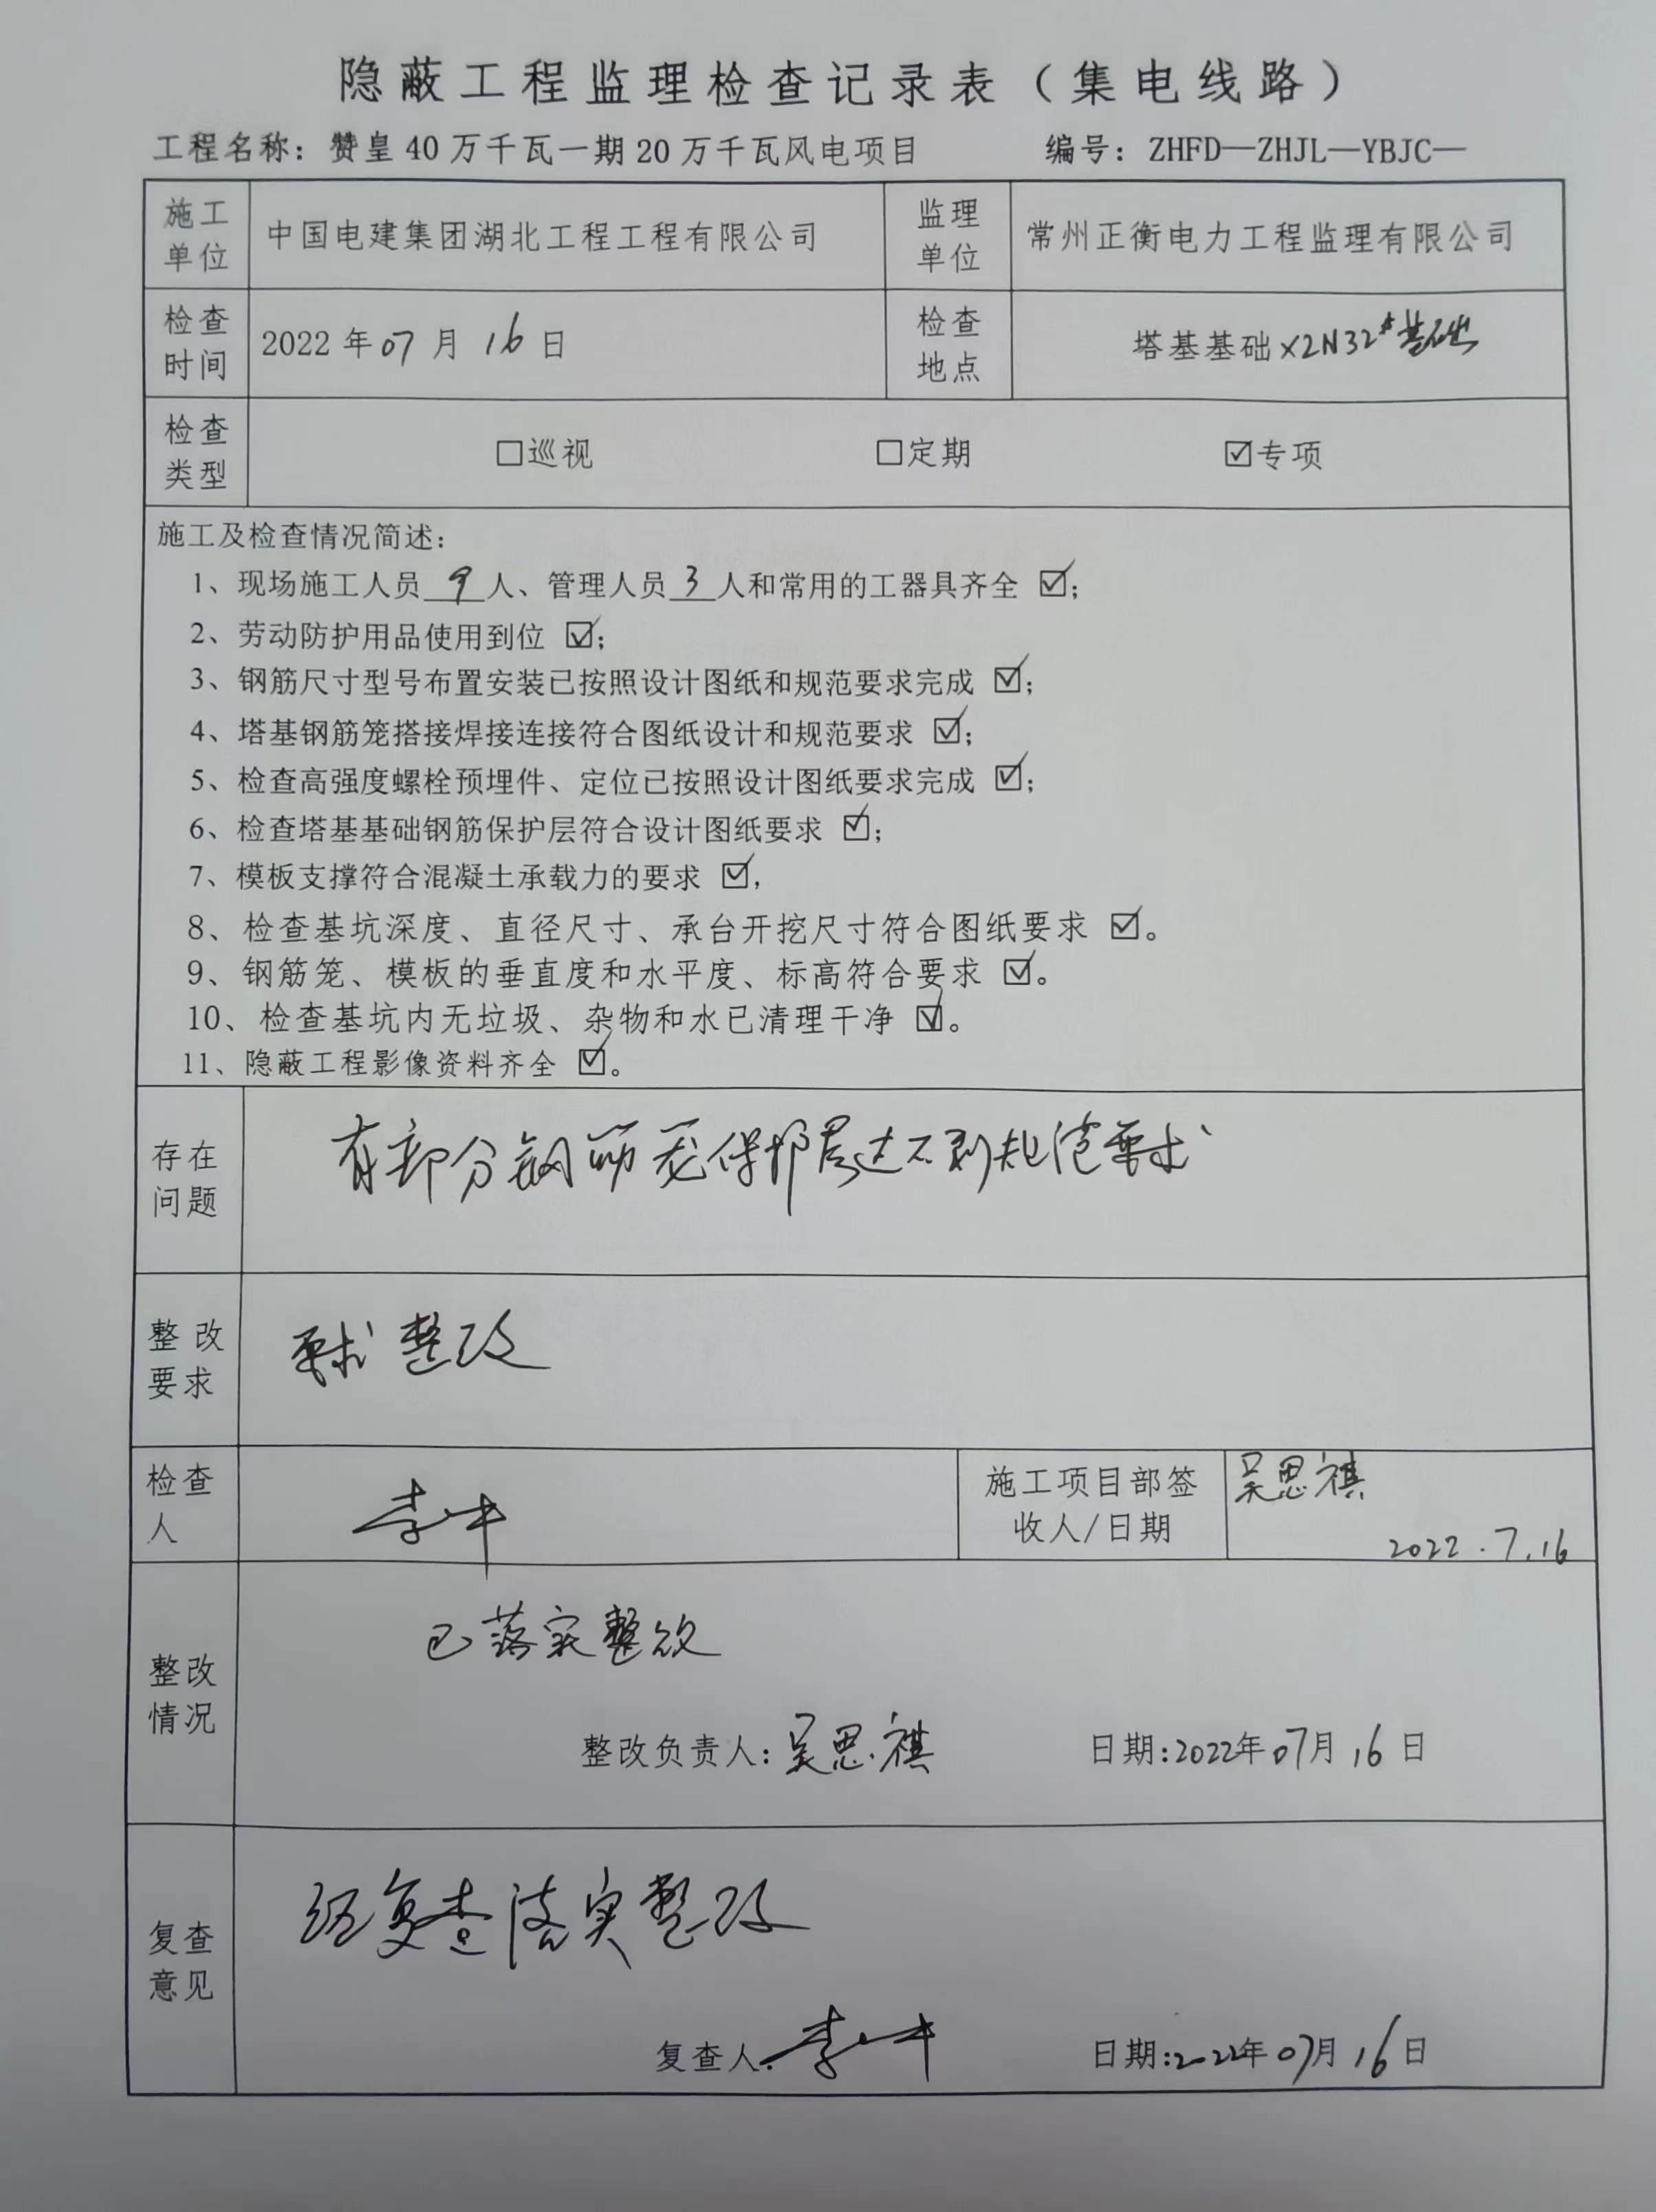 隐蔽工程监理检查记录表（集电线路）
工程名称：赞皇 40 万千瓦一期 20 万千瓦风电项目 编号：ZHFD—ZHJL—YBJC—
施工单位 中国电建集团湖北工程工程有限公司 监理单位 常州正衡电力工程监理有限公司
检查时间 2022 年 07 月 16 日 检查地点 塔基基础 X2N32#基础
检查类型 □巡视 □定期 ☑专项
施工及检查情况简述：
1、现场施工人员 9 人、管理人员 3 人和常用的工器具齐全 ☑；
2、劳动防护用品使用到位 ☑；
3、钢筋尺寸型号布置安装已按照设计图纸和规范要求完成 ☑；
4、塔基钢筋笼搭接焊接连接符合图纸设计和规范要求 ☑；
5、检查高强度螺栓预埋件、定位已按照设计图纸要求完成 ☑；
6、检查塔基基础钢筋保护层符合设计图纸要求 ☑；
7、模板支撑符合混凝土承载力的要求 ☑，
8、检查基坑深度、直径尺寸、承台开挖尺寸符合图纸要求 ☑。
9、钢筋笼、模板的垂直度和水平度、标高符合要求 ☑。
10、检查基坑内无垃圾、杂物和水已清理干净 ☑。
11、隐蔽工程影像资料齐全 ☑。
存在问题 有部分钢筋笼保护层达不到规范要求
整改要求 要求整改
检查人 李 施工项目部签收人/日期 吴思祺
2022.7.16
整改情况 已落实整改
整改负责人：吴思祺 日期:2022年07月16日
复查意见 经复查落实整改
复查人：李 日期:2022年07月16日